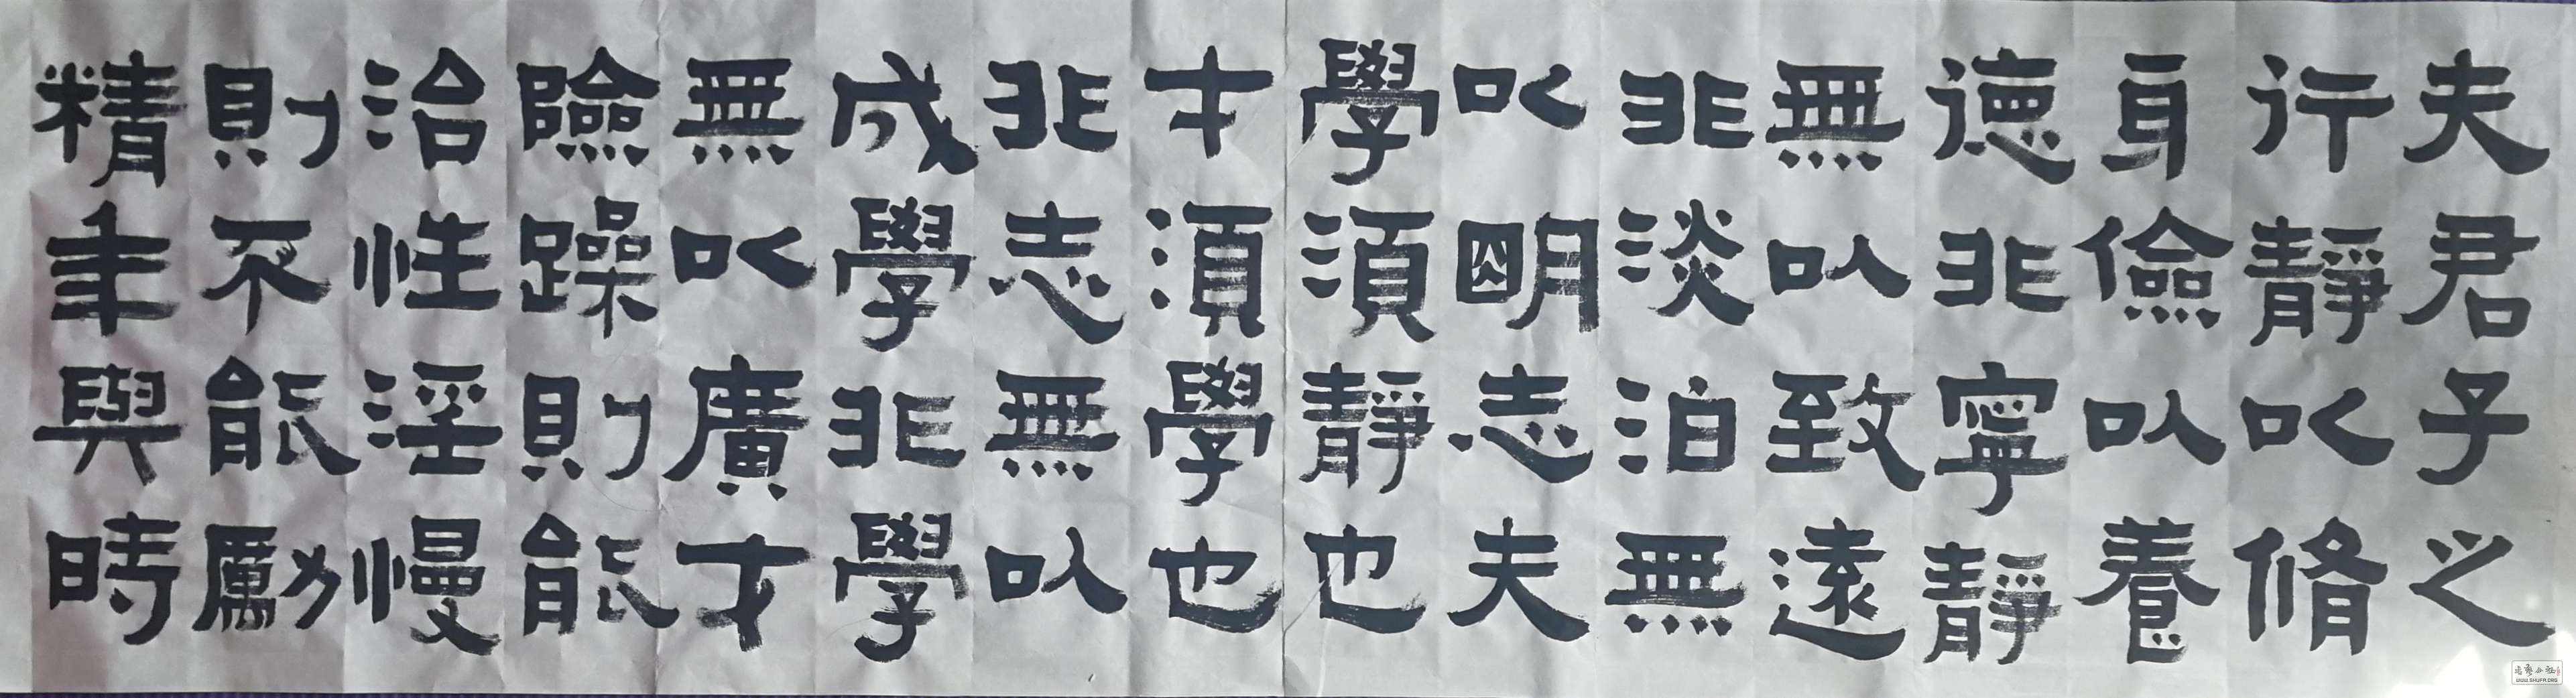 夫君子之
行靜以脩
身儉以養
德非寧靜
無以致遠
非淡泊無
以明志夫
學須靜也
才須學也
非志無以
成學非學
無以廣才
險躁則能
治性淫慢
則不能勵
精年與時
WWW.SHUFA.ORG